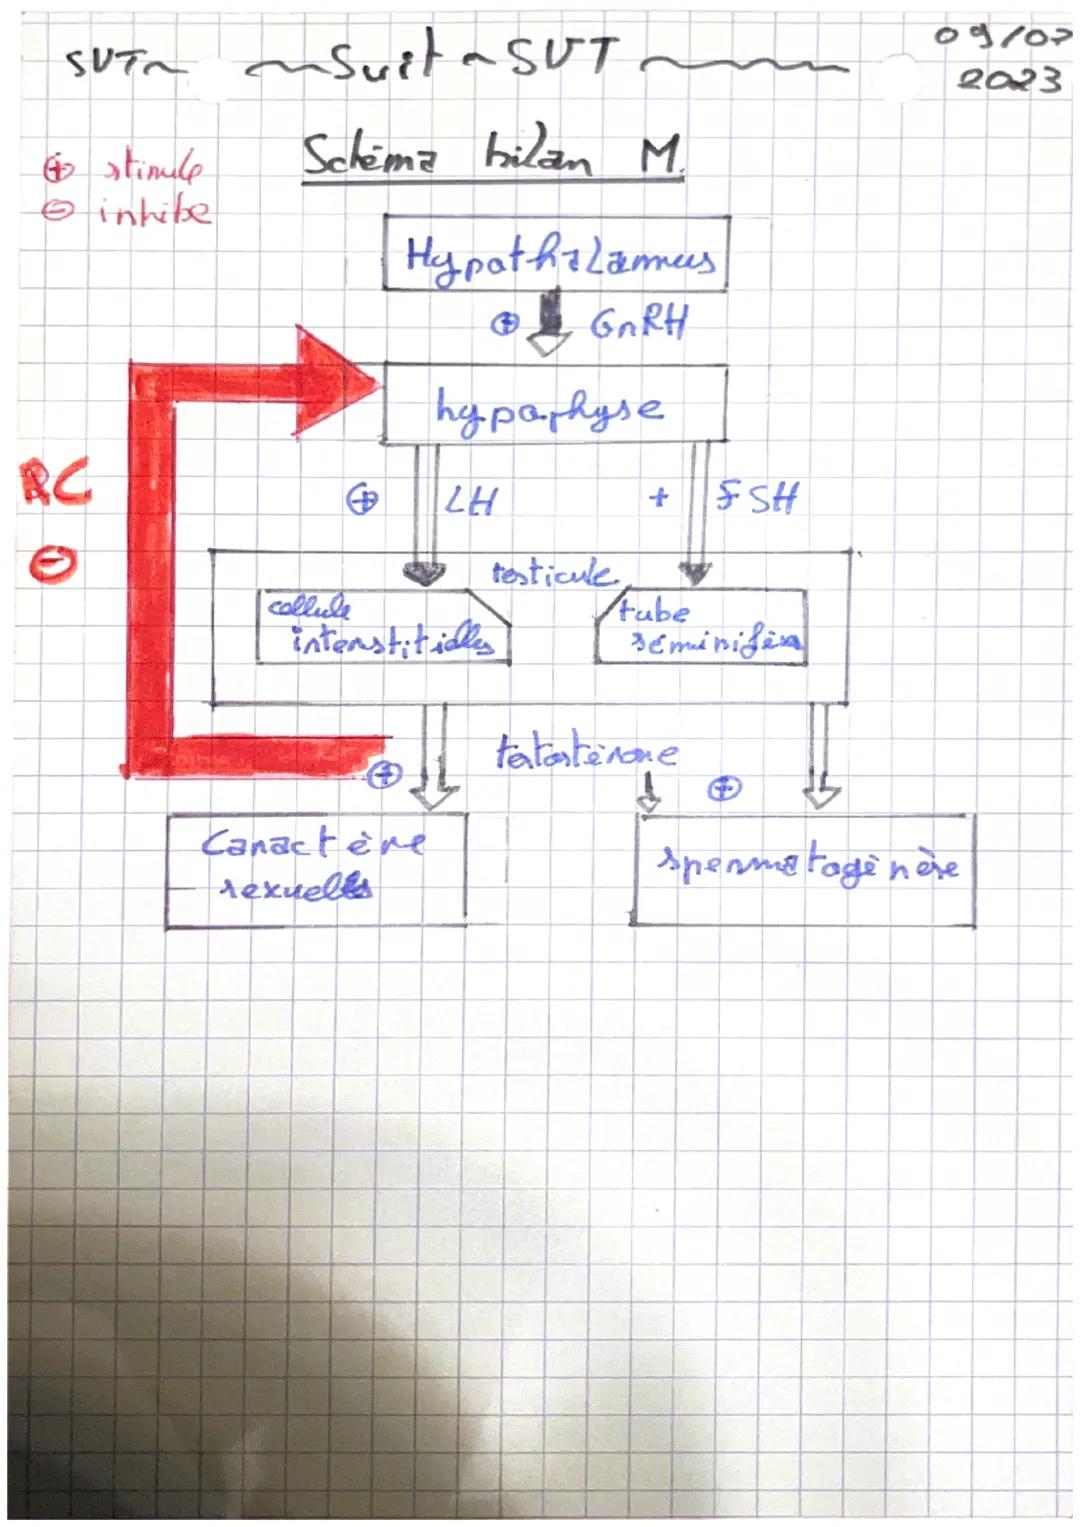 SVT Suit SVT 09/07
2023
Schéma bilan M.
⊕ stimule
⊖ inhibe
Hypothalammus
⊕ GnRH
hypophyse
RC
⊖
⊕ LH + FSH
testicule
cellule
interstitielles
tube
séminifère
testostérone
⊕ ⊕
Caractère
sexuelles
spermatogénèse